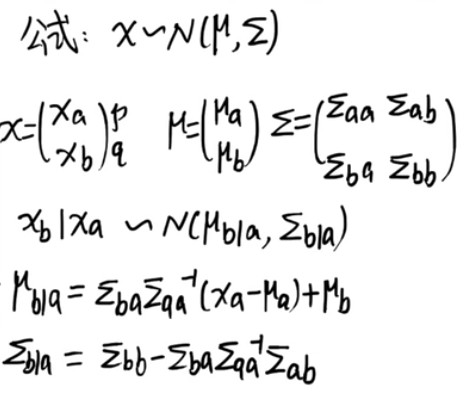 公式: x∽N(μ,Σ)
x=(xa xb)p q μ=(μa μb) Σ=(Σaa Σab Σba Σbb)
xb|xa ∽ N(μb|a, Σb|a)
μb|a = ΣbaΣaa⁻¹(xa-μa)+μb
Σb|a = Σbb-ΣbaΣaa⁻¹Σab